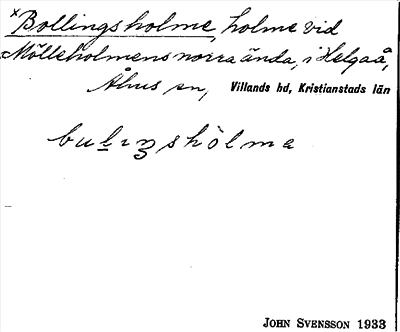 ×Bollingsholme, holme vid
Mölleholmens norra ända, i Helgaå,
Åhus sn, Villands hd, Kristianstads län
bulıŋshòlma
JOHN SVENSSON 1933